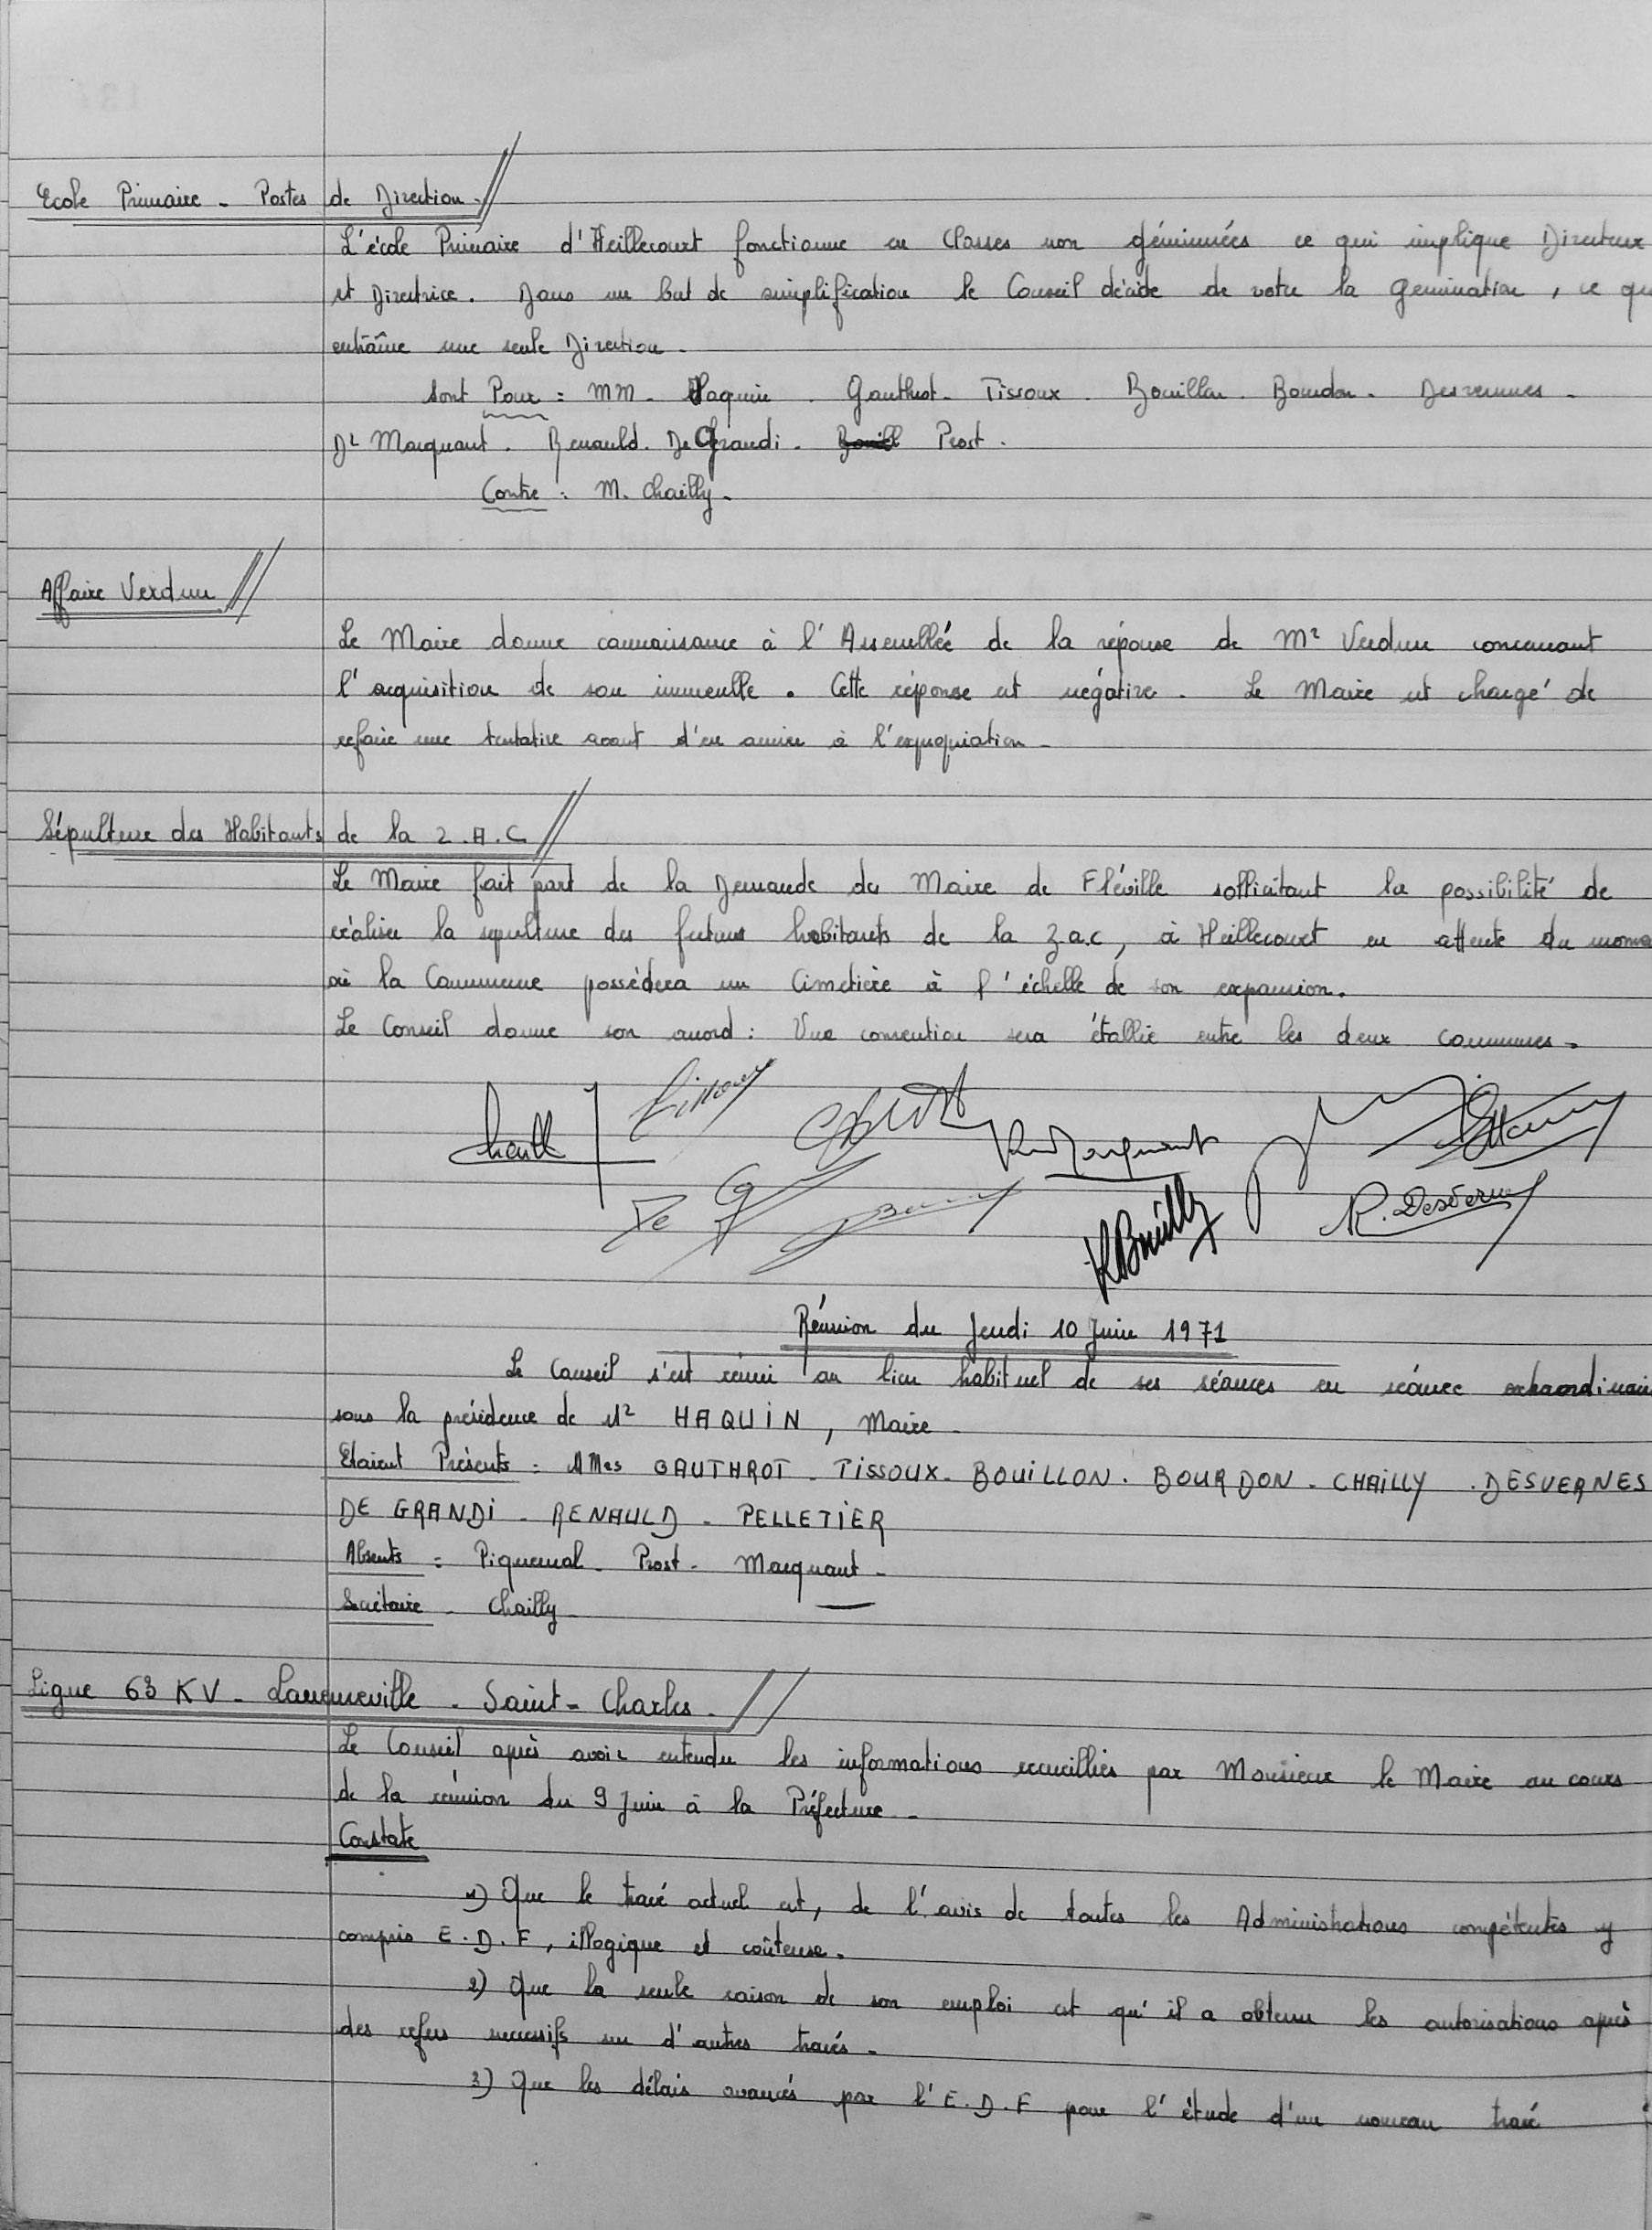 Ecole Primaire - Postes de Direction -
L'école Primaire d'Heillecourt fonctionne en Classes non géminées ce qui implique Directeur
et Directrice. Dans un but de simplification le Conseil décide de voter la gemination, ce qu
entraîne une seule Direction -
Sont Pour : MM - Haquin - Gauthrot - Tissoux - Bouillon - Bourdon - Desvernes -
Dr Marquant - Renauld - De Grandi - Prost .
Contre : M. Chailly -
Affaire Verdun
Le Maire donne connaissance à l'Assemblée de la réponse de Mr Verdun concernant
l'acquisition de son immeuble . Cette réponse est négative . Le Maire est chargé de
refaire une tentative avant d'en arriver à l'expropriation -
Sépulture des Habitants de la Z.A.C
Le Maire fait part de la Demande du Maire de Fléville sollicitant la possibilité de
réaliser la sepulture des futurs habitants de la Z.a.c, à Heillecourt en attente du mome
où la Commune possèdera un Cimetière à l'échelle de son expansion.
Le Conseil donne son accord : Une convention sera établie entre les deux communes -
Chailly
De G
R. Desvernes
Réunion du Jeudi 10 Juin 1971
Le Conseil s'est réuni au lieu habituel de ses séances en séance extraordinair
sous la présidence de Mr HAQUIN, Maire -
Etaient Présents : MMes GAUTHROT - TISSOUX - BOUILLON - BOURDON - CHAILLY - DESVERNES
DE GRANDI - RENAULD - PELLETIER
Absents : Piquemal - Prost - Marquant -
Secrétaire - Chailly -
Ligne 63 KV - Laneuveville - Saint-Charles -
Le Conseil après avoir entendu les informations recueillies par Monsieur le Maire au cours
de la réunion du 9 Juin à la Préfecture -
Constate
1) Que le tracé actuel est, de l'avis de toutes les Administrations compétentes y
compris E.D.F, illogique et coûteuse.
2) Que la seule raison de son emploi est qu'il a obtenu les autorisations après
des refus successifs sur d'autres tracés -
3) Que les délais avancés par l'E.D.F pour l'étude d'un nouveau tracé